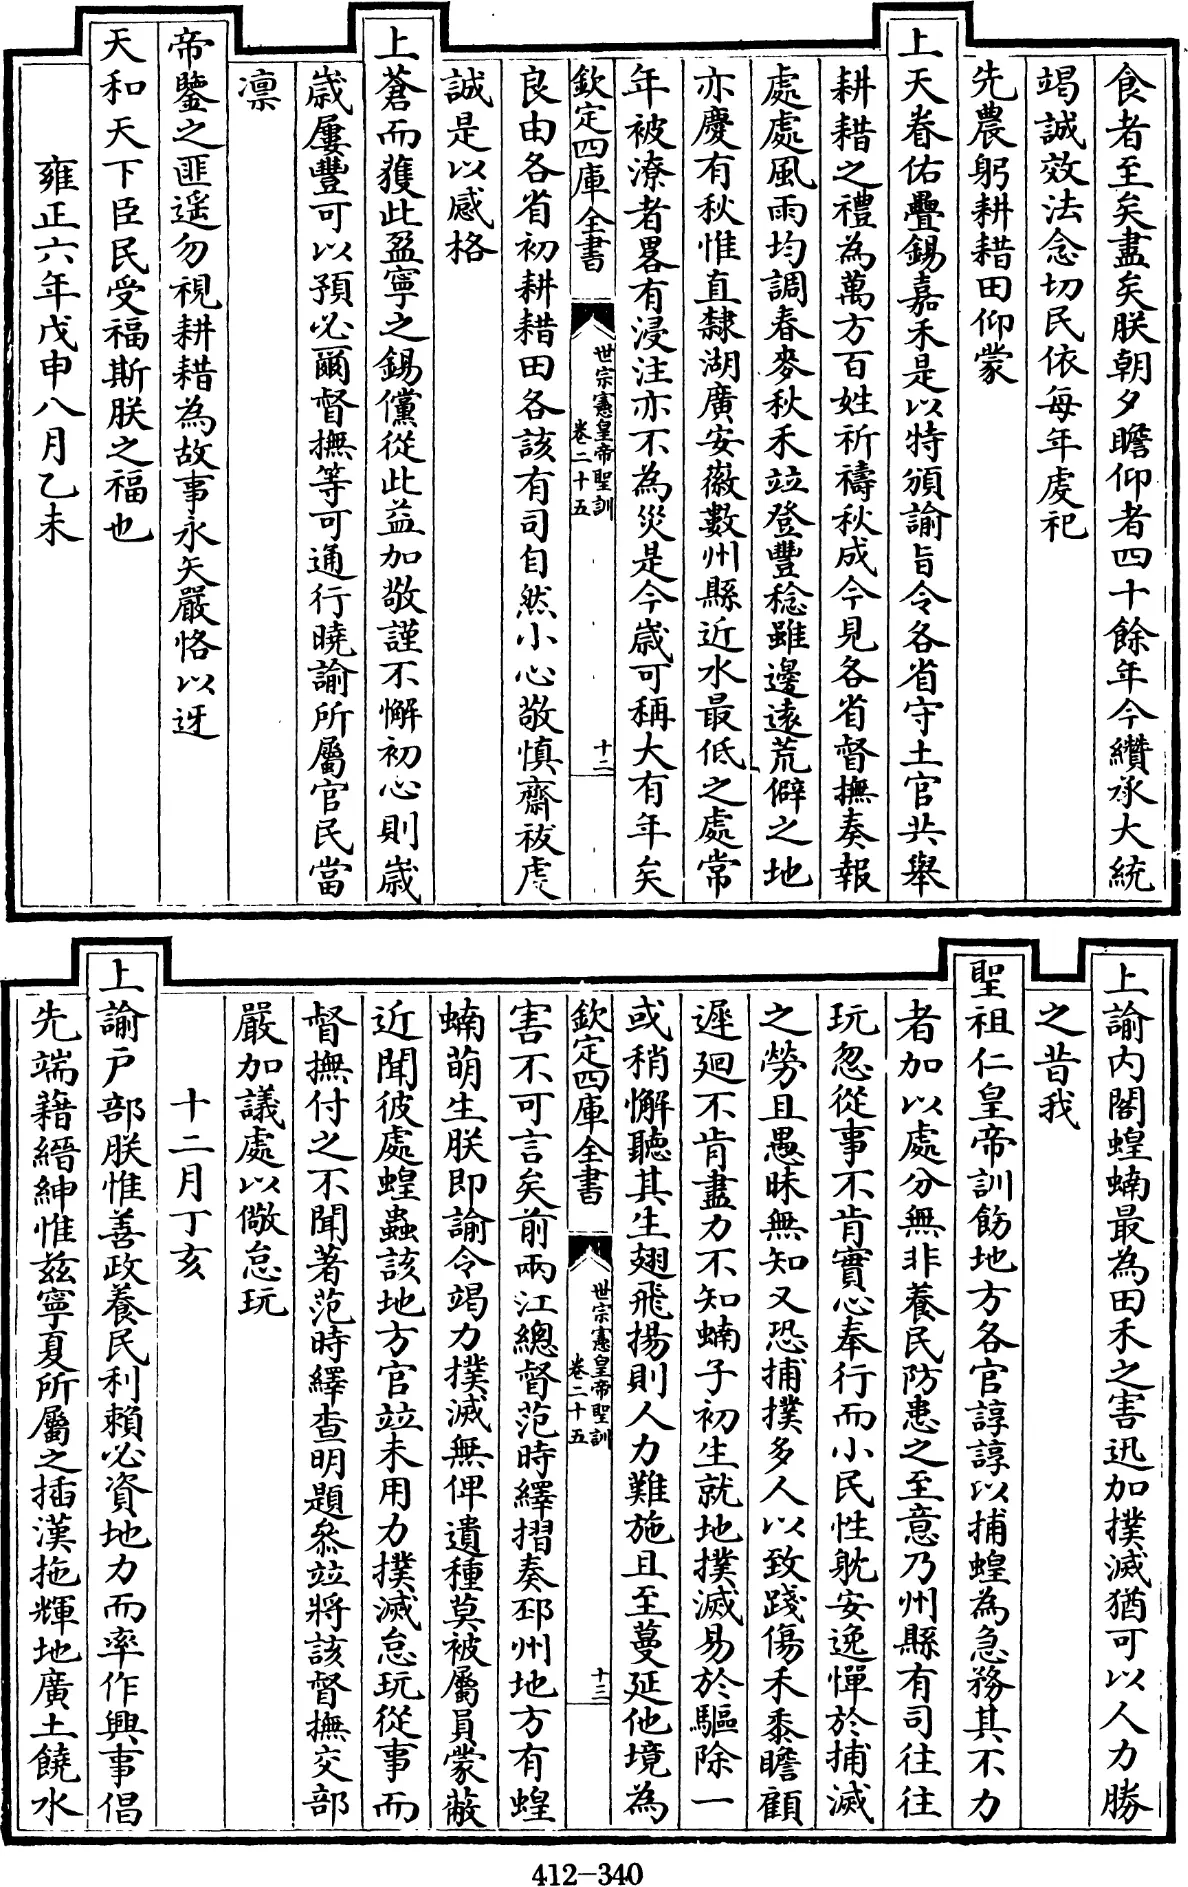 食者至矣盡矣朕朝夕瞻仰者四十餘年今纘承大統
竭誠效法念切民依每年虔祀
先農躬耕耤田仰蒙
上天眷佑疊錫嘉禾是以特頒諭旨令各省守土官共舉
耕耤之禮為萬方百姓祈禱秋成今見各省督撫奏報
處處風雨均調春麥秋禾竝登豐稔雖邊遠荒僻之地
亦慶有秋惟直隸湖廣安徽數州縣近水最低之處常
年被潦者畧有浸注亦不為災是今歲可稱大有年矣
欽定四庫全書
世宗憲皇帝聖訓
卷二十五
十二
良由各省初耕耤田各該有司自然小心敬慎齋祓虔
誠是以感格
上蒼而獲此盈寧之錫儻從此益加敬謹不懈初心則歲
歲屢豐可以預必爾督撫等可通行曉諭所屬官民當
凛
帝鑒之匪遥勿視耕耤為故事永矢嚴恪以迓
天和天下臣民受福斯朕之福也
雍正六年戊申八月乙未
上諭内閣蝗蝻最為田禾之害迅加撲滅猶可以人力勝
之昔我
聖祖仁皇帝訓飭地方各官諄諄以捕蝗為急務其不力
者加以處分無非養民防患之至意乃州縣有司往往
玩忽從事不肯實心奉行而小民性躭安逸憚於捕滅
之勞且愚昧無知又恐捕撲多人以致踐傷禾黍瞻顧
遲廻不肯盡力不知蝻子初生就地撲滅易於驅除一
或稍懈聽其生翅飛揚則人力難施且至蔓延他境為
欽定四庫全書
世宗憲皇帝聖訓
卷二十五
十三
害不可言矣前兩江總督范時繹摺奏邳州地方有蝗
蝻萌生朕即諭令竭力撲滅無俾遺種莫被屬員蒙蔽
近聞彼處蝗蟲該地方官竝未用力撲滅怠玩從事而
督撫付之不聞著范時繹查明題參竝將該督撫交部
嚴加議處以儆怠玩
十二月丁亥
上諭户部朕惟善政養民利賴必資地力而率作興事倡
先端藉縉紳惟兹寧夏所屬之插漢拖輝地廣土饒水
412-340